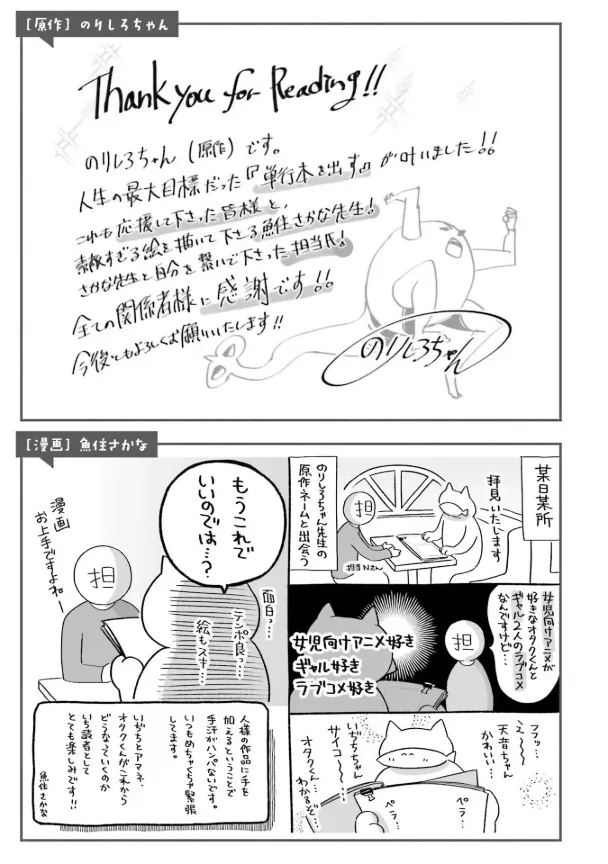 [原作] のりしろちゃん
Thank you for Reading!!
のりしろちゃん(原作)です。
人生の最大目標だった『単行本を出す』が叶いました!!
これも応援して下さった皆様と、
素敵すぎる絵を描いて下さる魚住さかな先生!
さかな先生と自分を繋いで下さった担当氏!
全ての関係者様に感謝です!!
今後ともよろしくお願いいたします!!
のりしろちゃん
[漫画] 魚住さかな
某日某所
拝見いたします
担
担当Nさん
のりしろちゃん先生の
原作ネームと出会う
女児向けアニメが
好きなオタクくんと
ギャル2人のラブコメ
なんですけど…
担
女児向けアニメ好き
ギャル好き
ラブコメ好き
フフッ…
え〜〜
天音ちゃん
かわいい…
いぢちちゃん
サイコー…
オタクくん…
わかるぞ…
ペラ…
ペラ…
もうこれで
いいのでは…?
面白っ…
テンポ良っ…
絵もスキ…
担
漫画
お上手ですよねー
人様の作品に手を
加えるということで
手汗がハンパないです。
いつもめちゃくちゃ緊張
してます。
いぢちとアマネ、
オタクくんがこれから
どうなっていくのか
いち読者として
とても楽しみです!!
魚住さかな